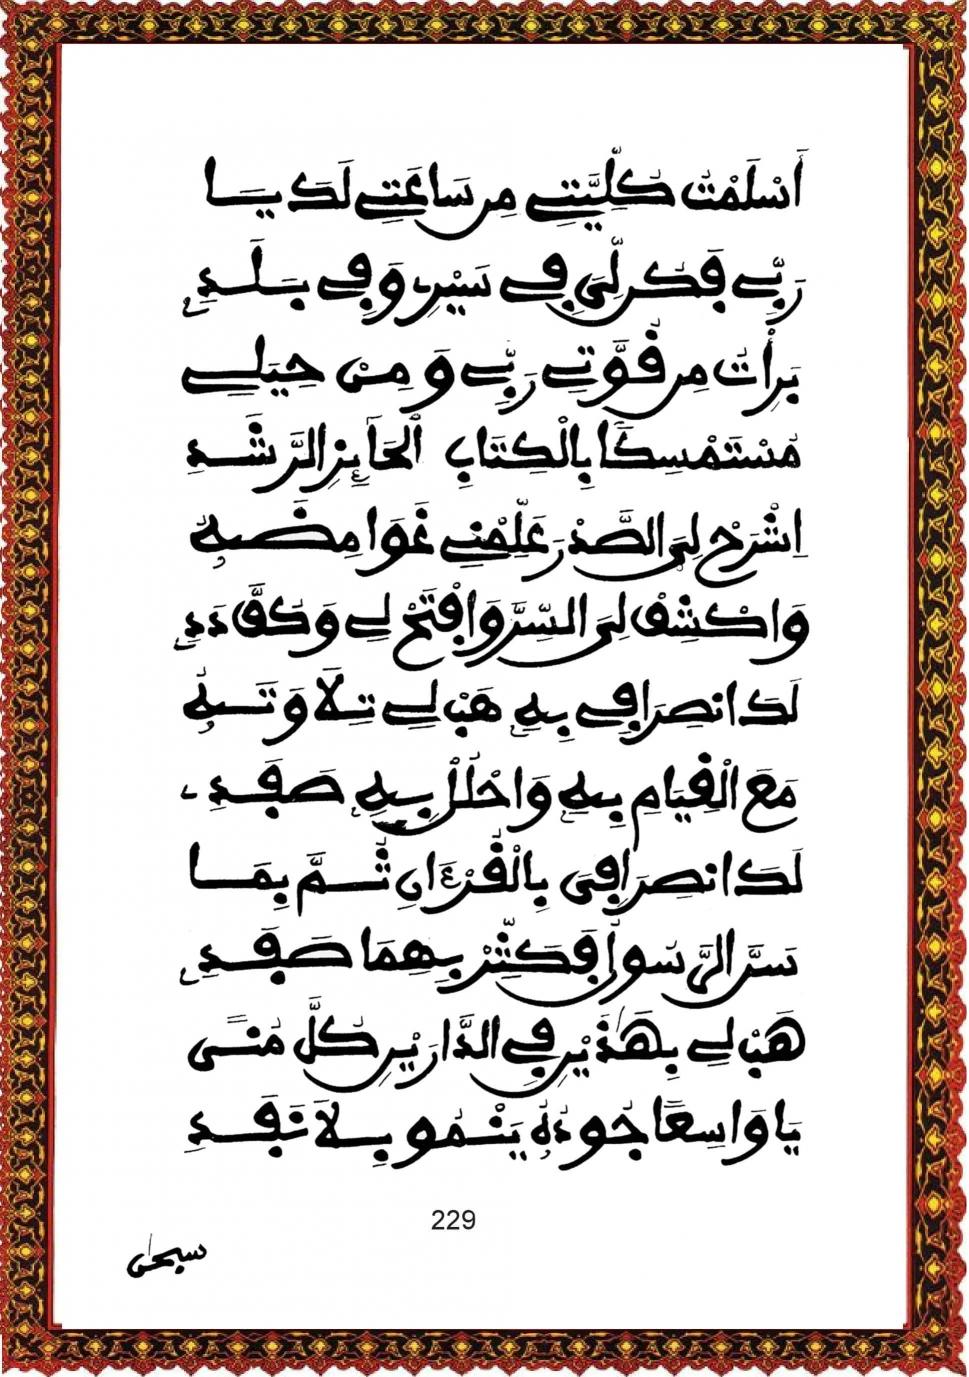 أَسْلَمْتُ كُلِّيَّتِي مِن سَاعَتِي لَكَ يَا
رَبِّي فَكُن لِّيَ فِي سَيْرِي وَفِي بَلَدِي
بَرَأْتُ مِن قُوَّتِي رَبِّي وَمِنْ حِيَلِي
مُسْتَمْسِكًا بِالْكِتَابِ الْحَائِزِ الرَّشَدِ
اِشْرَحْ لِيَ الصَّدْرَ عَلِّمْنِي غَوَامِضَهُ
وَاكْشِفْ لِيَ السِّرَّ وَافْتَحْ لِي وَكَفَّ دَدِ
لَكَ انصِرَافِي بِهِ هَبْ لِي تِلَاوَتَهُ
مَعَ الْقِيَامِ بِهِ وَاحْلُلْ بِهِ صَفَدِي
لَكَ انصِرَافِيَ بِالْقُرْءَانِ ثُمَّ بِمَا
سَرَّ الرَّسُولَ فَكَثِّرْ بِهِمَا صَفَدِي
هَبْ لِي بِهَٰذَيْنِ فِي الدَّارَيْنِ كُلَّ مُنًى
يَا وَاسِعًا جُودُهُ يَنْمُو بِلَا نَفَدِ
229